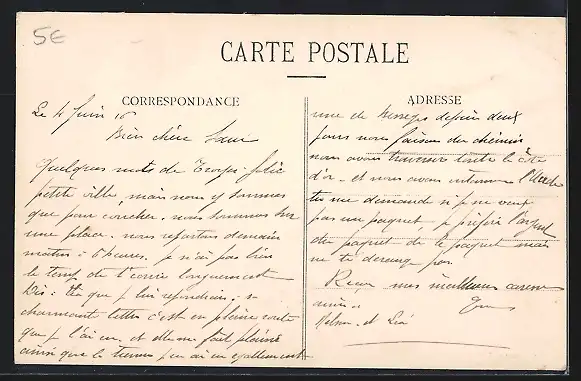 5€
CARTE POSTALE
CORRESPONDANCE
ADRESSE
Le 4 Juin 16
Bien chère Sœur
Quelques mots de Troyes jolie
petite ville, mais nous y sommes
que pour coucher. nous sommes sur
une place. nous repartons demain
matin à 6 heures. je n'ai pas bien
le temp de t'écrire longuement
dis à que je lui répondrais; sa
charmante lettre c'est en pleine route
que je l'ai eu et elle me fait plaisir
ainsi que la tienne j'en ai eu également
une de depuis deux
jours nous faisons du chemin
nous avons traverser toute la côte
d'or et nous avons l'
tu me demande si je ne veut
pas un paquet, je préfère l'argent
du paquet que le paquet mais
ne te derange pas.
Reçois mes meilleures caresses
amis
et Léa